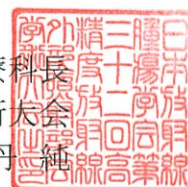 科長
大会
丹 純
日本放射線
腫瘍学会第
三十二回高
精度放射線
外部照射部